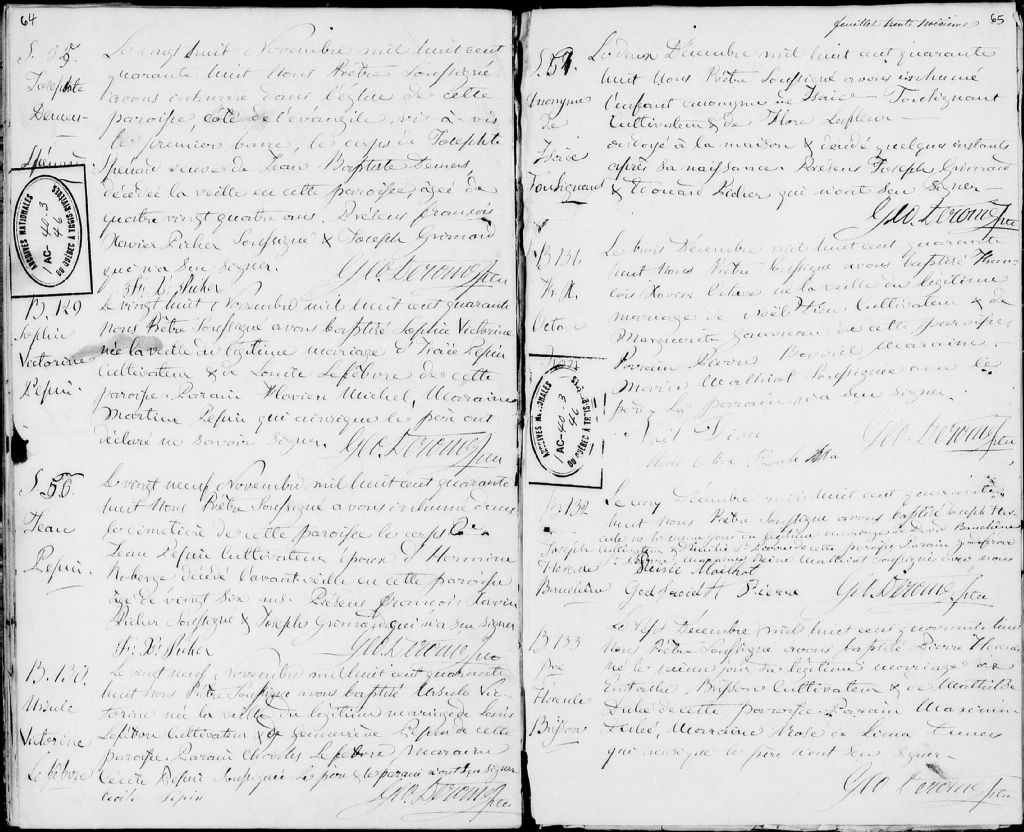 64
S. 55.
Josephte
Demers
Spénard
Le vingt huit Novembre mil huit cent
quarante huit Nous Prêtre Soussigné
avons inhumé dans l'église de cette
paroisse, côté de l'évangile, vis à vis
le premier banc, le corps de Josephte
veuve de Jean Baptiste Demers,
décédée la veille en cette paroisse, agée de
quatre vingt quatre ans. Présens François
Xavier Picher Soussigné & Joseph Grimard
qui n'a su signer. Geo. Derome Ptre
Fr. X. Picher
ARCHIVES NATIONALES
DU QUÉBEC À TROIS-RIVIÈRES
AC-40.3
46
B. 129
Sophie
Victorine
Pepin
Le vingt huit Novembre mil huit cent quarante
Nous Prêtre Soussigné avons baptisé Sophie Victorine
née la veille du légitime mariage d'Isaïe Pepin
Cultivateur & de Louise Lefebvre de cette
paroisse. Parain Flavien Michel, Maraine
Martine Pepin qui ainsi que le père ont
déclaré ne savoir signer. Geo. Derome Ptre
S. 56
Jean
Pepin
Le vingt neuf Novembre mil huit cent quarante
huit Nous Prêtre Soussigné avons inhumé dans
le cimetière de cette paroisse le corps de
Jean Pepin Cultivateur époux d'Hermine
Roberge décédé l'avant veille en cette paroisse
âgé de vingt six ans. Présens François Xavier
Picher Soussigné & Joseph Grimard qui n'a su signer
Fr. X. Picher Geo. Derome Ptre
B. 130.
Ursule
Victorine
Lefebvre
Le vingt neuf Novembre mil huit cent quarante
huit Nous Prêtre Soussigné avons baptisé Ursule Vic-
torine née la veille du légitime mariage de Louis
Lefebvre Cultivateur & de Pepin de cette
paroisse. Parain Charles Lefebvre Maraine
Cécile Pepin Soussignée Le père & le parain n'ont su signer
Cecile Pepin Geo. Derome Ptre
feuillet trente troisième 65
S. 57.
Anonyme
de
Isaïe
Tousignant
Le deux Décembre mil huit cent quarante
huit Nous Prêtre Soussigné avons inhumé
l'enfant anonyme de Isaïe Tousignant
Cultivateur & de Flore
ondoyé à la maison & décédé quelques instants
après sa naissance. Présens Joseph Grimard
& Edouard Picher qui n'ont su signer
Geo. Derome Ptre
B 131.
Fr. X.
Octave
Dion
Le trois Décembre mil huit cent quarante
huit Nous Prêtre Soussigné avons baptisé Fran-
cois Xavier Octave né la veille du légitime
mariage de Noël Dion Cultivateur & de
Marguerite de cette paroisse.
Parain Pierre Maraine
Marie Mailhot Soussignée avec le
père. Le parrain n'a su signer.
Noël Dion Geo. Derome Ptre
ARCHIVES NATIONALES
DU QUÉBEC À TROIS-RIVIÈRES
AC-40.3
46
B. 132
Joseph
Hercule
Beaudoin
Le cinq Décembre mil huit cent quarante
huit Nous Prêtre Soussigné avons baptisé Joseph Her-
cule né le même jour du légitime mariage de
Cultivateur & de cette paroisse Parain
Maraine Mailhot Soussignés avec nous
Desirée Mailhot
Geo. Derome Ptre
B 133
Pre
Hercule
Brisson
Le sept Décembre mil huit cent quarante huit
Nous Prêtre Soussigné avons baptisé Pierre Hercule
né le même jour du légitime mariage de
Eustache Brisson Cultivateur & de Mathilde
Aubé de cette paroisse. Parain Maximin
Aubé, Marraine Rose de Lima Demers
qui ainsi que le père n'ont su signer
Geo. Derome Ptre